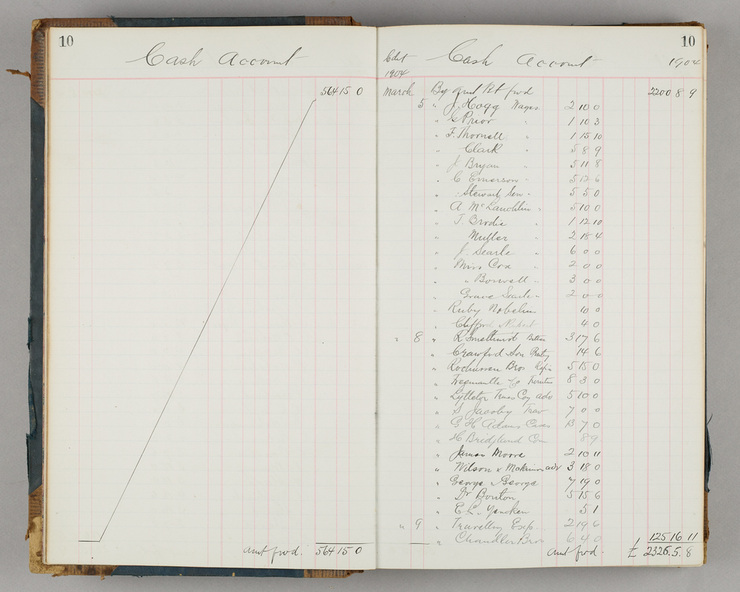 10
Cash Account
564 15 0
amt fwd. 564 15 0
10
Cash Account 1904
1904
March By amt fwd 2200 8 9
5 " J. Hogg Wages 2 10 0
" G Prior " 1 10 3
" F. Thornell " 1 15 10
" Clark " 5 8 9
" J. Bryan " 5 11 8
" C Emerson " 5 12 6
" Stewart " 5 5 0
" A McLauchlin " 5 10 0
" T Brodie " 1 12 10
" Muller " 2 18 4
" J. Searle " 6 0 0
" Miss Cox " 2 0 0
" " " 3 0 0
" Grace Searle " 2 0 0
" Ruby 10 0
" Clifford 4 0
" 8 " Smethurst 3 17 6
" Crawford 14 6
" Bros 5 15 0
" 8 3 0
" Lyttelton Times Coy adv 5 10 0
" S Jacoby Trav 7 0 0
" G. H. Adams 13 7 0
" H Bridgland 8 9
" James Moore 2 10 11
" Wilson & adv 3 18 0
" George & George 7 19 0
" Dr Bonton 5 15 6
" E. L. Yencken 5 1
" 9 " Travelling Exp. 2 19 6
" Chandler Bros 6 4 0 125 16 11
amt fwd. £ 2326. 5. 8